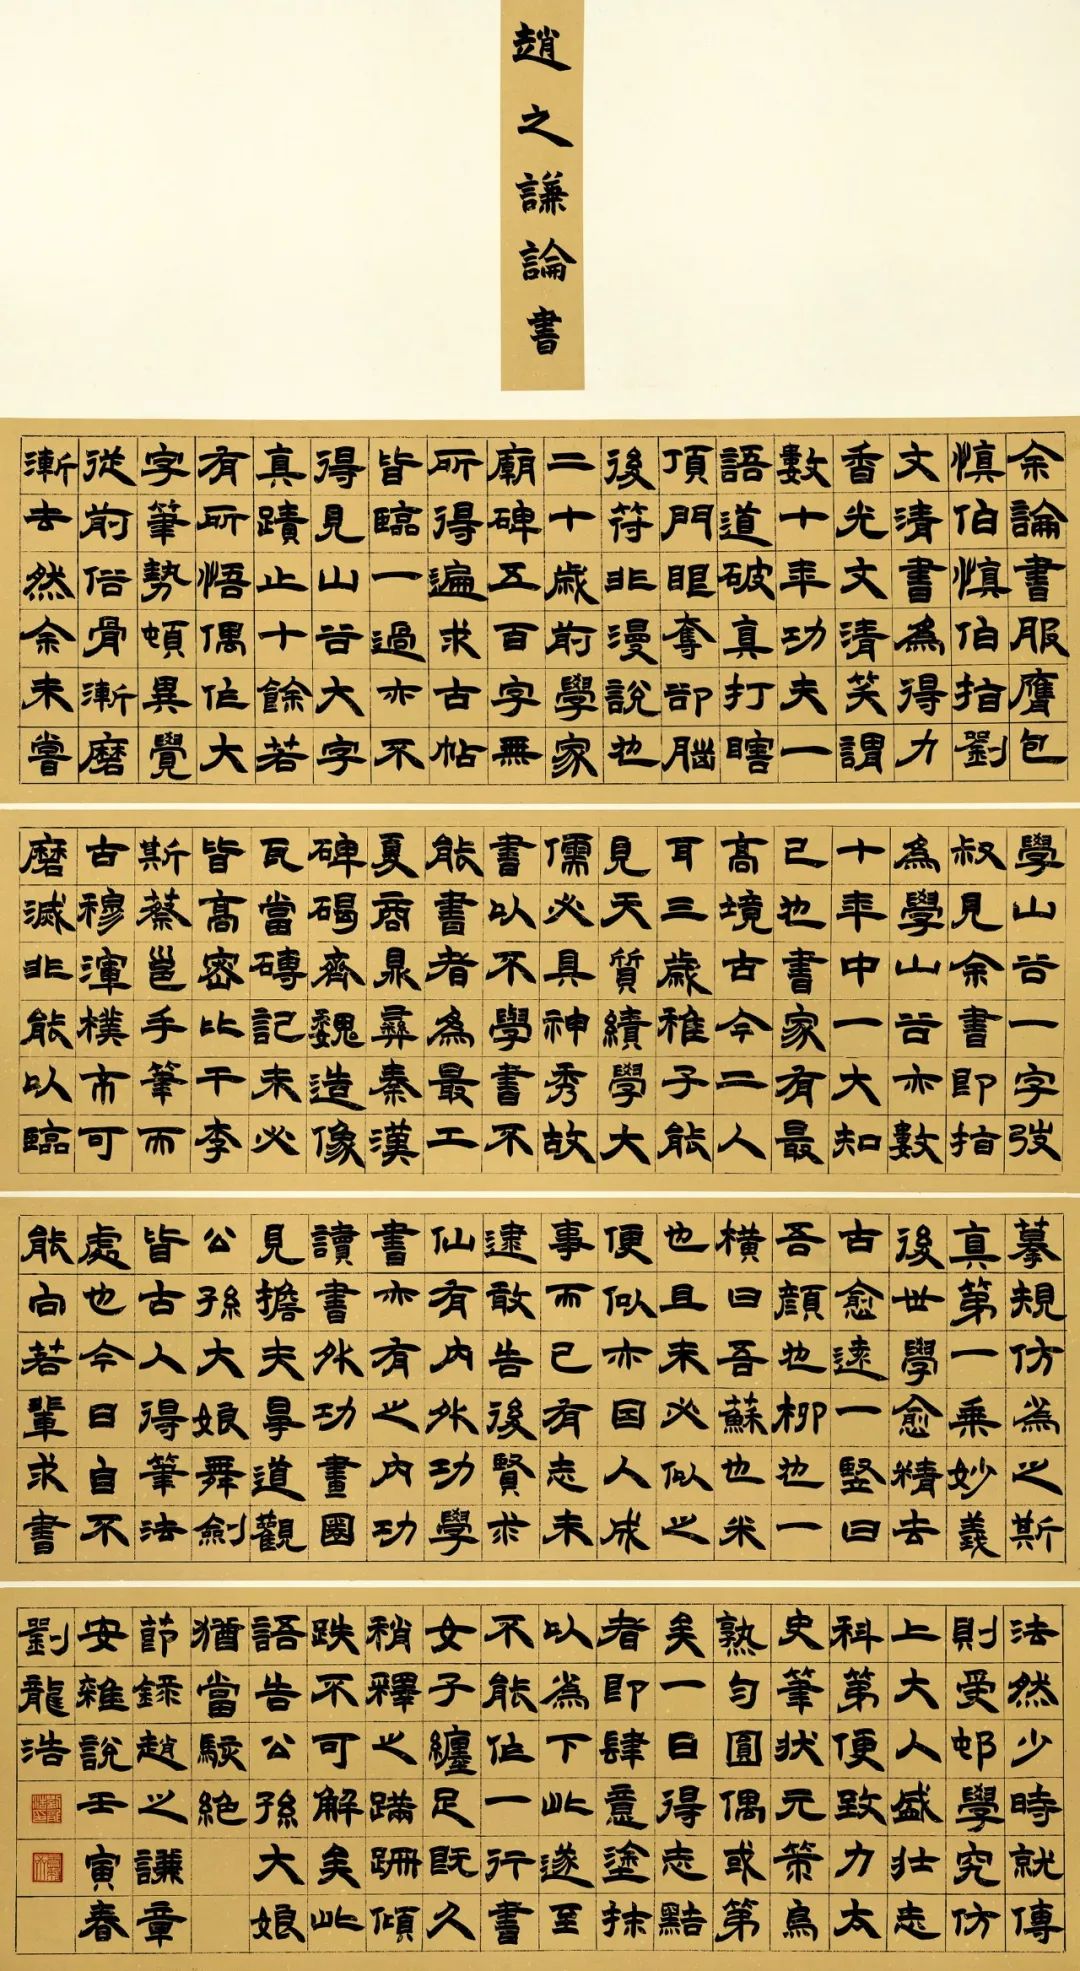 趙之謙論書
余論書服膺包
慎伯慎伯指劉
文清書為得力
香光文清笑謂
數十年功夫一
語道破真打瞎
頂門眼奪卻腦
後符非漫說也
二十歲前學家
廟碑五百字無
所得遍求古帖
皆臨一過亦不
得見山谷大字
真蹟止十餘若
有所悟偶作大
字筆勢頓異覺
從前俗骨漸磨
漸去然余未嘗
學山谷一字弢
叔見余書即指
為學山谷亦數
十年中一大知
己也書家有最
高境古今二人
耳三歲稚子能
見天質績學大
儒必具神秀故
書以不學書不
能書者為最工
夏商鼎彝秦漢
碑碣齊魏造像
瓦當磚記未必
皆高密比干李
斯蔡邕手筆而
古穆渾樸不可
磨滅非能以臨
摹規仿為之斯
真第一乘妙義
後世學愈精去
古愈遠一豎曰
吾顏也柳也一
橫曰吾蘇也米
也且未必似之
便似亦因人成
事而已有志未
逮敢告後賢求
仙有內外功學
書亦有之內功
讀書外功畫圈
見擔夫爭道觀
公孫大娘舞劍
皆古人得筆法
處也今日自不
能向若輩求書
法然少時就傅
則受邨學究仿
上大人盛壯志
科第便致力太
史筆狀元策烏
熟勻圓偶或第
矣一日得志黠
者即肆意塗抹
以為下此遂至
不能作一行書
女子纏足既久
稍釋之蹣跚傾
跌不可解矣此
語告公孫大娘
猶當駭絕
節錄趙之謙章
安雜說壬寅春
劉龍浩